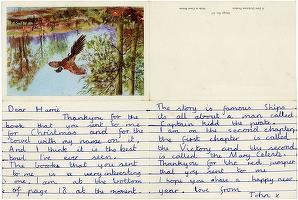 Dear
Thankyou for the
book that you sent to me
for Christmas and for the
towel with my name on it,
And I think it is the best
towl I've ever seen.
The booke that you sent
to me is a very interesting
one I am at the bottom
of page 18 at the moment.
The story is famous Ships
its all about a man called
Captain Kidd the pirate.
I am on the second chapter,
the first chapter is called
the Victory and the second
is called the Mary Celeste.
Thankyou for the red jumper
that you sent to me
I hope you have a happy new
year, love from
John x